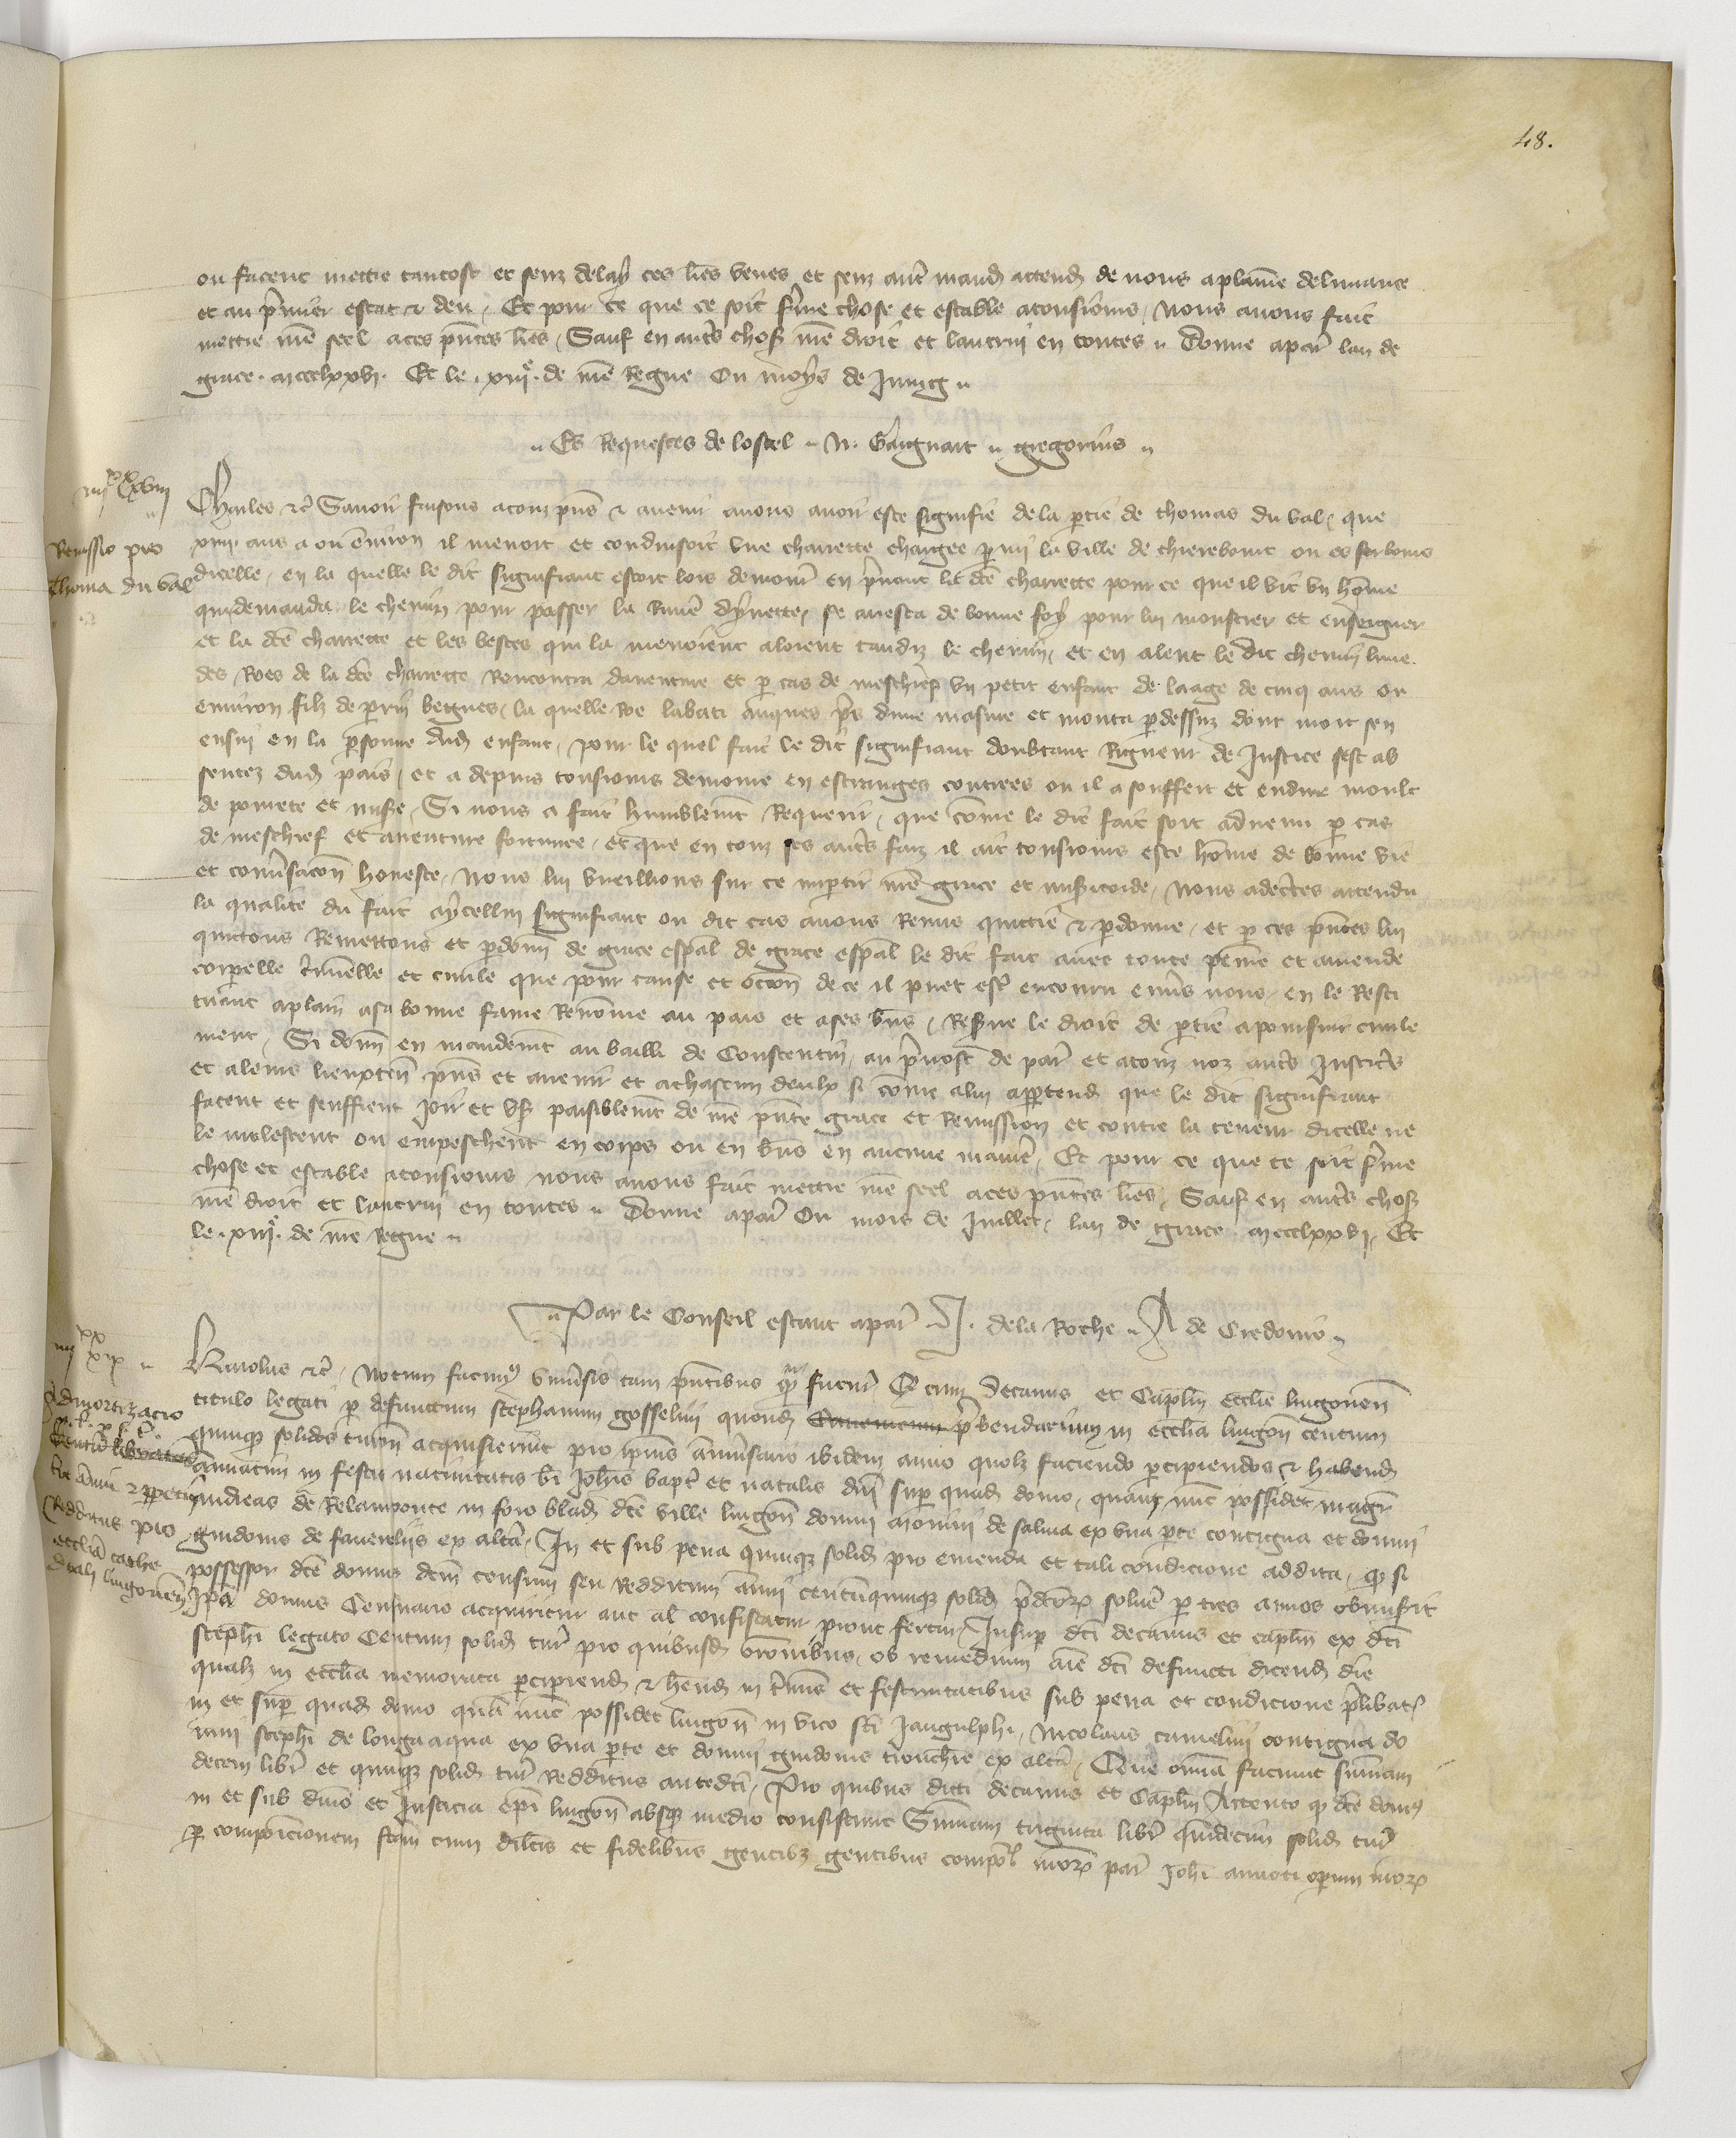 48.
ou facent mettre tantost et senz delay ces lres veues et senz autre mand attend de nous a plaine deliurance
et au premier estat & deu. Et pour ce que ce soit ferme chose et estable a tousiours, Nous auons fait
mettre nre seel a ces pntes lres, Sauf en autres choses nre droit et lautrui en toutes. Donne a par lan de
grace mccclxxvi. Et le xiiie de nre Regne Ou moys de Juing
Es Requestes de lostel N. Gaignart gregorius
iiiixx xviii
Remissio pro
Thoma du val
Charles &c Sauoir faisons a touz pns & auenir a nous auoir este signifie de la partie de thomas du val, que
xiiii ans a ou enuiron il menoit et conduisoit vne charrette chargee parmi la ville de chierebourc ou es forbours
dicelle, en la quelle le dit signifiant estoit lors demour en prenant la dce charrette pour ce que il vit vn home
qui demanda le chemin pour passer la Riuiere dyuette, se aresta de bonne foy pour lui monstrer et enseigner
et la dce charrette et les bestes qui la menoient aloient tandiz le chemin, et en alent le dit chemin lune
des Roes de la dce charrette Rencontra dauenture et par cas de meschief vn petit enfant de laage de cinq ans ou
enuiron filz de perrin begues, la quelle roe labati auques pres dune masure et monta par dessuz dont mort sen
ensui en la personne dud enfant, pour le quel fait le dit signifiant doubtant Rigueur de Justice sest ab
sentez dud pais, et a depuis tousiours demoure en estranges contrees ou il a souffert et endure moult
de pourete et misere, Si nous a fait humblemt Requerir, que come le dit fait soit aduenu par cas
de meschief et auenture fortunee, et que en touz ses autres faiz il ait tousiours este home de bonne vie
et conuersacon honeste, Nous lui vueillions sur ce impartir nre grace et misericorde, Nous adcertes attendu
la qualite du fait a ycellui signifiant ou dit cas auons Remis quittie & pardonne, et par ces pntes lui
quittons Remettons et pardonn de grace espal de grace espal le dit fait auec toute peine et amende
corporelle criminelle et ciuile que pour cause et occon de ce il puet estre encouru enuers nous, en le Resti
tuant a plain a sa bonne fame Renomee au pais et a ses biens, Reserue le droit de partie a poursuir ciuile
ment, Si donn en mandemt au bailli de Constentin, au preuost de par et a touz noz autres Justiciers
et a leurs lieuxten pns et auenir et a chascun deulx si come a lui appartend que le dit signifiant
facent et seuffrent joir et vser paisiblemt de nre pnte grace et Remission et contre la teneur dicelle ne
le molestent ou empeschent en corps ou en biens en aucune maniere, Et pour ce que ce soit ferme
chose et estable a tousiours nous auons fait mettre nre seel a ces pntes lres, Sauf en autres choses
nre droit et lautrui en toutes. Donne a par Ou mois de Juillet, lan de grace mccclxxvi, Et
le xiiie de nre Regne
Par le Conseil estant a par J. de la Roche A de Credonio
iiiixx xix
Admortizacio
tre annui & perpetui
Redditus pro
ecclia cathe
drali lingonen
Karolus &c, Notum facimus vniuersis tam pntibus quam futur Q cum Decanus et Caplm ecclie lingonen
titulo legati per defunctum stephanum gosselini quond Canonicum prebendarium in ecclia lingon centum
quinque solidos turon acquisierint pro ipius anniuersario ibidem anno quolz faciendo percipiendos & habend
annuatim in festis natiuitatis bi Johis bapte et natalis dni super quad domo, quam nunc possidet magr
andreas de Relamponte in foro blad dce ville lingon domui monini de salina ex vna parte contigua et domui
guidonis de fauerolis ex altera, In et sub pena quinque solid pro emenda et tali condicione addita, q si
possessor dce domus dcm censum seu Redditum annui centumquinque solid pdcorum soluere per tres annos obmiserit
Ipa domus Centenario acquiritur aut al confiscatur prout fertur, Insuper dci decanus et caplm ex dci
stephi legato Centum solid tur pro quibusd oronibus, ob remedium anie dci defuncti dicend die
qualz in ecclia memorata percipiend & hend in terminis et festiuitatibus sub pena et condicione prelibat
in et super quad domo quam nunc possidet lingon in vico sci Jangulphi, Nicolaus camelini contigua do
mui stephi de longa aqua ex vna parte et domui guidonis trouchie ex altera, Que omnia faciunt sumam
decem libr et quinque solid tur Redditus antedci, Pro quibus dicti decanus et Caplm Attento q dce domus
in et sub dnio et Justicia epi lingon absque medio consistunt Sumam triginta libr quindecim solid tur
per composicionem fcam cum dilcis et fidelibus gentibus gentibus compotorum nrorum par Johi amioti operum nrorum